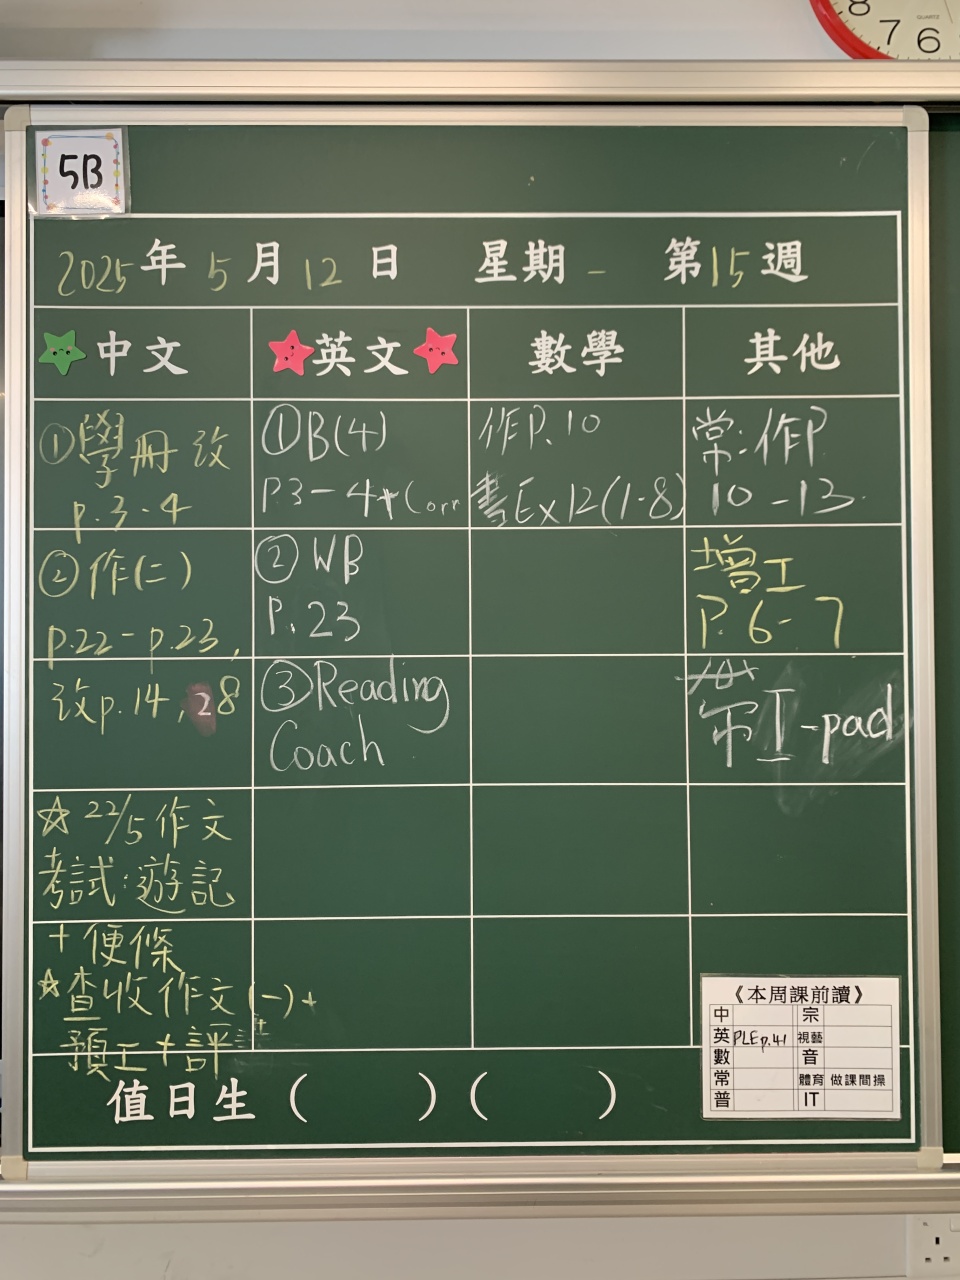 8
7 6
QUARTZ
5B
2025年5月12日 星期一 第15週
中文 英文 數學 其他
①學冊改
p.3-4
①B(4)
P.3-4+Corr
作P.10
書Ex12(1-8)
常:作P
10-13
②作(二)
p.22-p.23,
② WB
P.23
增工
P.6-7
改p.14,28
③Reading
Coach
I-pad
☆22/5作文
考試:遊記
+便條
☆查收作文(一)+
預工+評
《本周課前讀》
中 宗
英 PLE p.41 視藝
數 音
常 體育 做課間操
普 IT
值日生( )( )